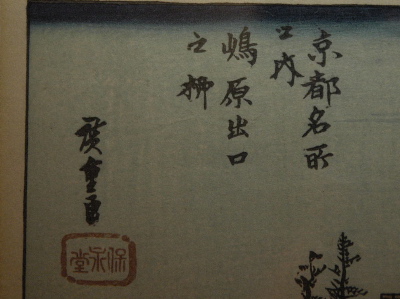 京都名所
之内
嶋原出口
之柳
廣重画
保永堂